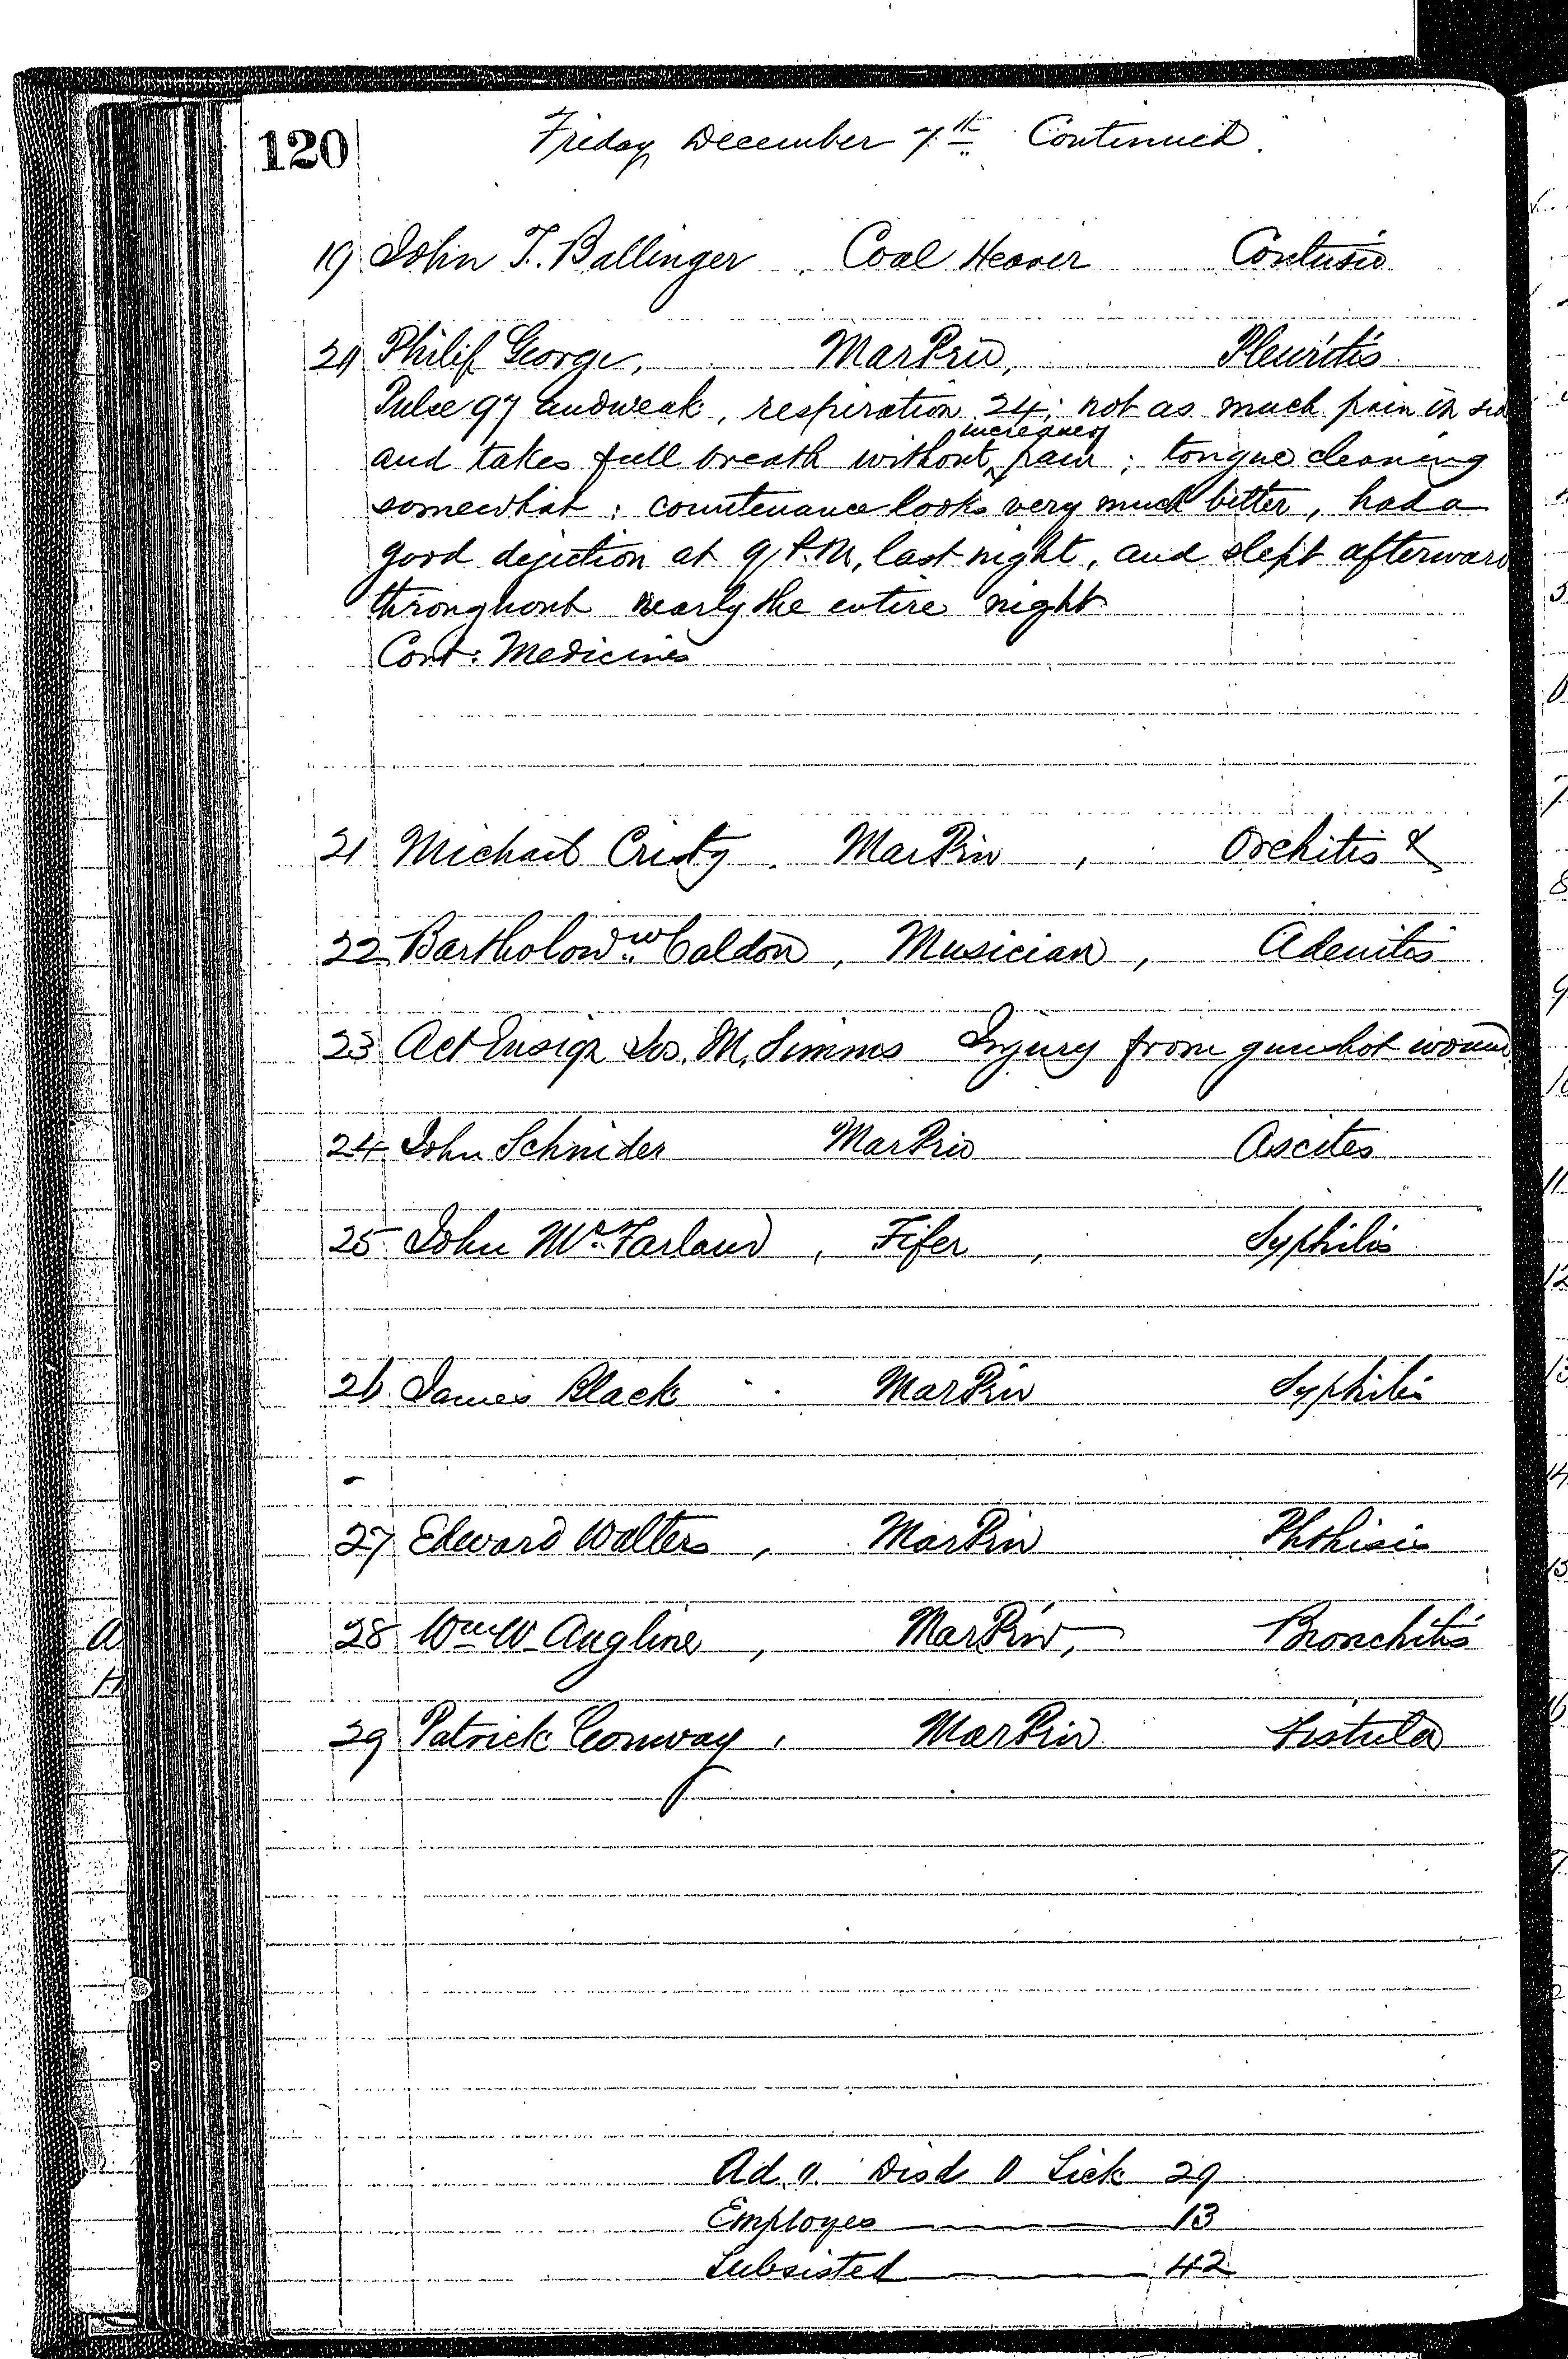 120
Friday December 7th Continued.
19 John T. Ballinger Coal Heaver Contusio
20 Philip George, Mar Priv, Pleuritis
Pulse 97 and weak, respiration 24; not as much pain in side
increased
and takes full breath without pain; tongue cleaning
somewhat: countenance looks very much better, had a
good dejection at 9 P.M, last night, and slept afterward
throughout nearly the entire night
Cont: Medicines
21 Michael Cristy Mar Priv, Orchitis &
22 Bartholow Caldon, Musician, Adenitis
23 Act Ensign Jos. M. Simms Injury from gunshot wound
24 John Schnider Mar Priv Ascites
25 John McFarland, Fifer, Syphilis
26 James Black Mar Priv Syphilis
27 Edward Walters, Mar Priv Phthisis
28 Wm W Angline, Mar Priv, Bronchitis
29 Patrick Conway, Mar Priv Fistula
Ad. 0. Disd 0 Sick 29
Employes 13
Subsisted 42